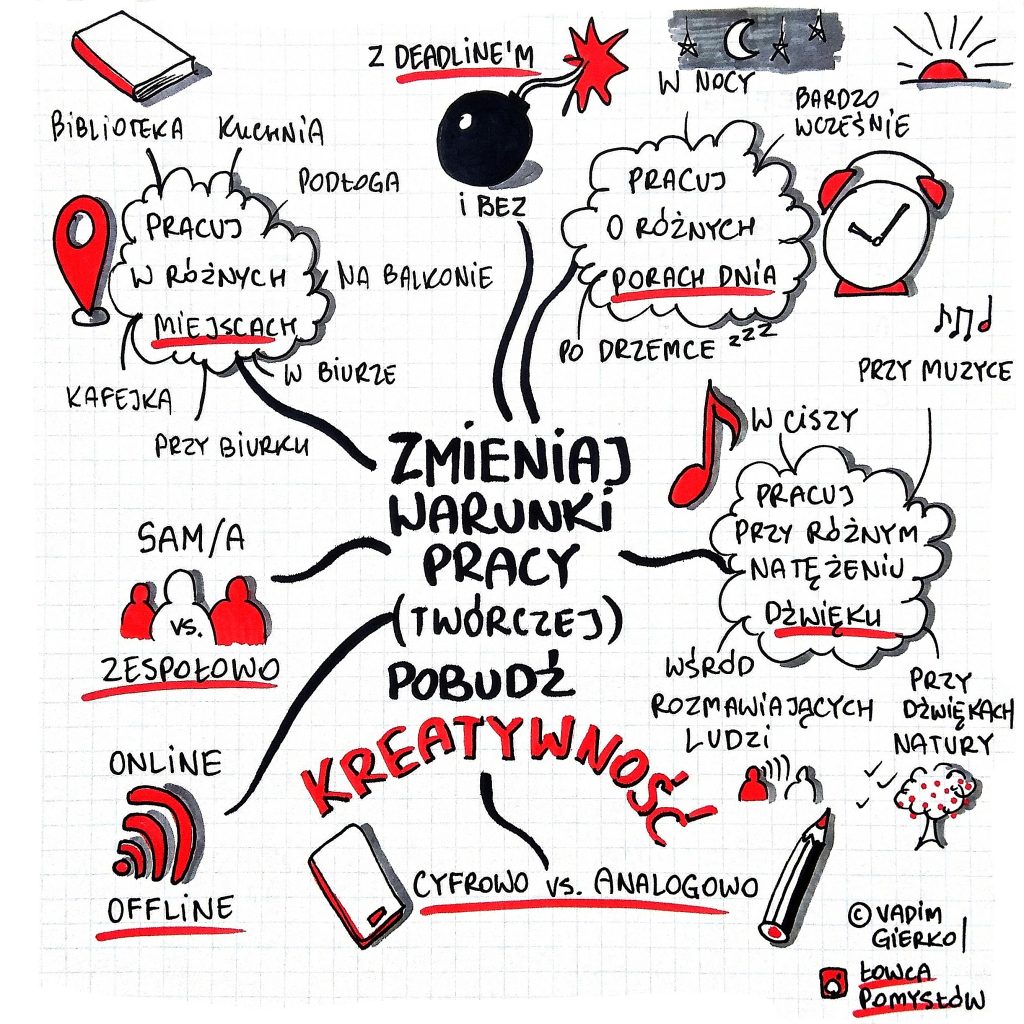 Z DEADLINE'M
i BEZ
W NOCY
BARDZO
WCZEŚNIE
BIBLIOTEKA
KUCHNIA
PODŁOGA
PRACUJ
W RÓŻNYCH
MIEJSCACH
NA BALKONIE
KAFEJKA
W BIURZE
PRZY BIURKU
PRACUJ
O RÓŻNYCH
PORACH DNIA
PO DRZEMCE zzz
PRZY MUZYCE
W CISZY
PRACUJ
PRZY RÓŻNYM
NATĘŻENIU
DŹWIĘKU
WŚRÓD
ROZMAWIAJĄCYCH
LUDZI
PRZY
DŹWIĘKACH
NATURY
ZMIENIAJ
WARUNKI
PRACY
(TWÓRCZEJ)
POBUDŹ
KREATYWNOŚĆ
!
SAM/A
vs.
ZESPOŁOWO
ONLINE
OFFLINE
CYFROWO vs. ANALOGOWO
© VADIM
GIERKO
ŁOWCA
POMYSŁÓW